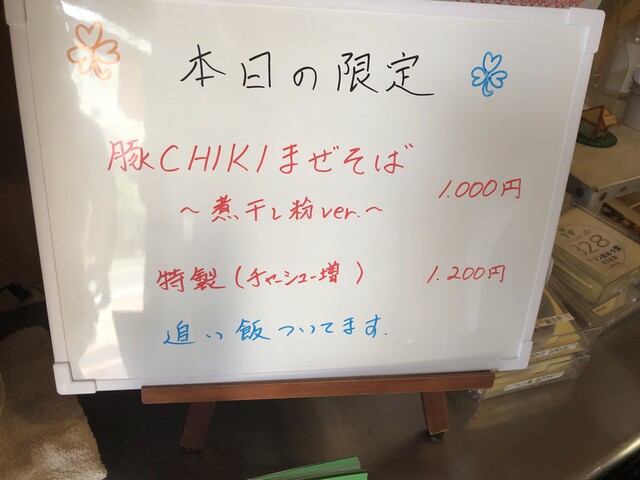 本日の限定
豚CHIKIまぜそば
1.000円
～煮干し粉ver.～
特製(チャーシュー増)
1.200円
追い飯ついてます.